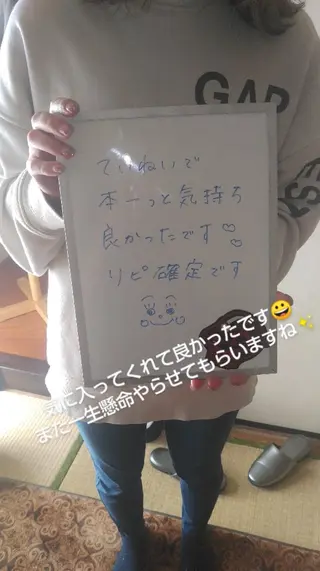 GAP
ていねいで
本一っと気持ち
良かったです♡♡
リピ確定です
気に入ってくれて良かったです😀
また一生懸命やらせてもらいますね✨